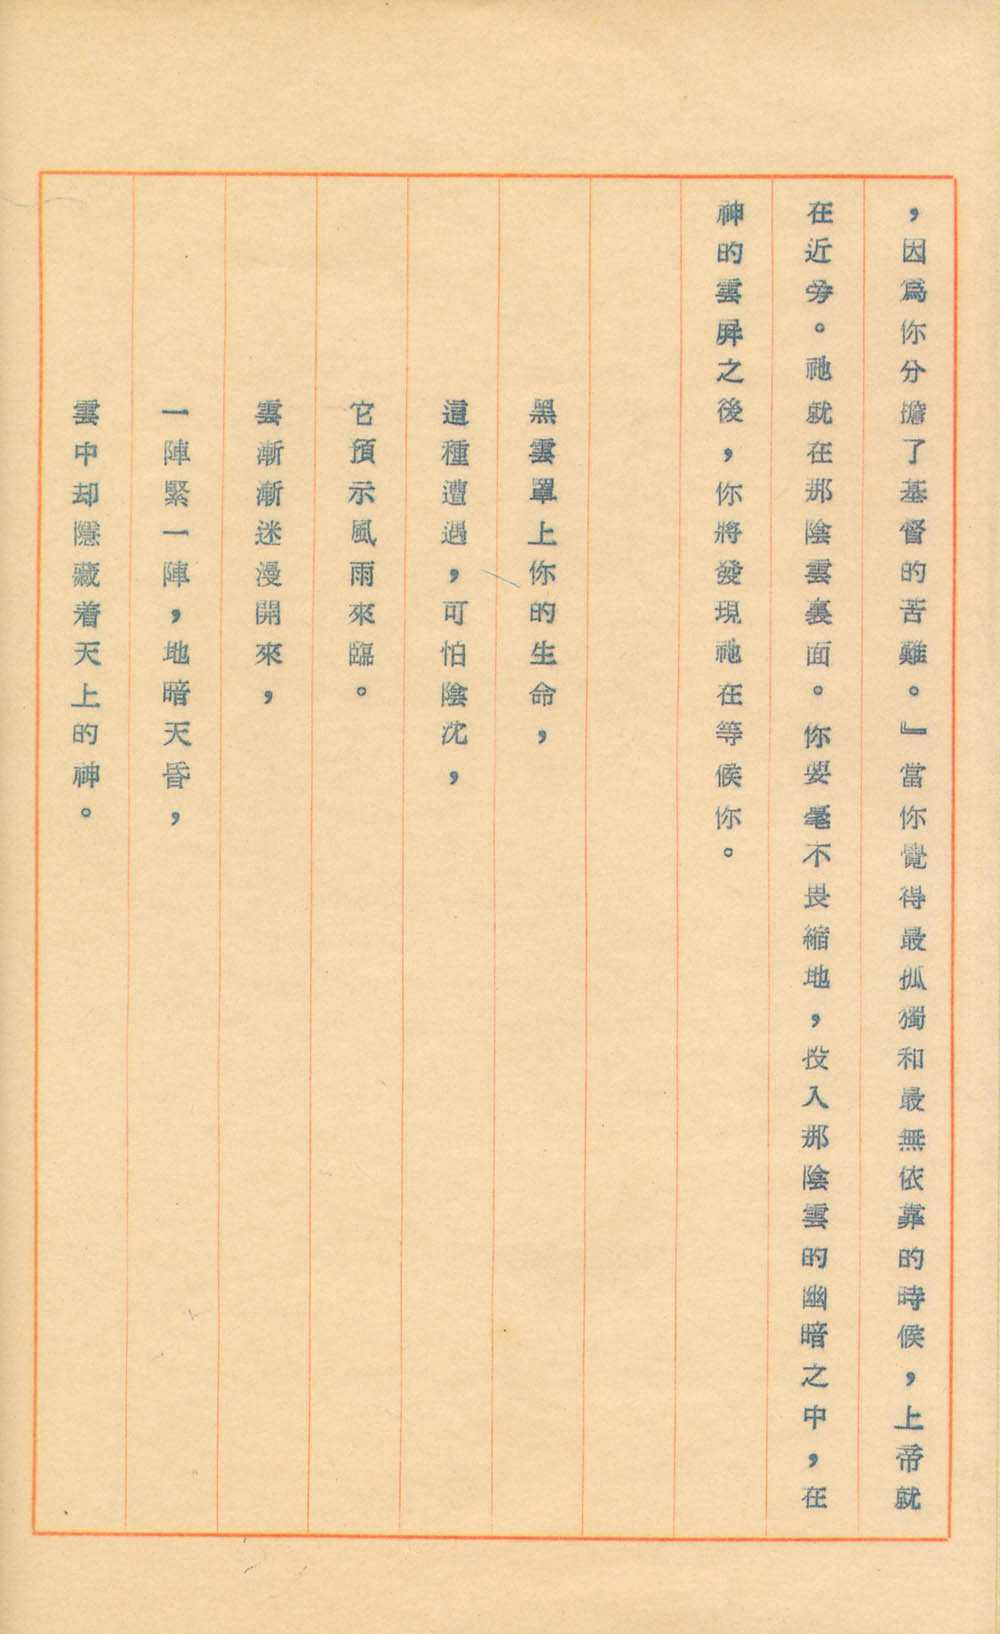 ，因爲你分擔了基督的苦難。』當你覺得最孤獨和最無依靠的時候，上帝就
在近旁。祂就在那陰雲裏面。你要毫不畏縮地，投入那陰雲的幽暗之中，在
神的雲屏之後，你將發現祂在等候你。
黑雲罩上你的生命，
這種遭遇，可怕陰沈，
它預示風雨來臨。
雲漸漸迷漫開來，
一陣緊一陣，地暗天昏，
雲中却隱藏着天上的神。